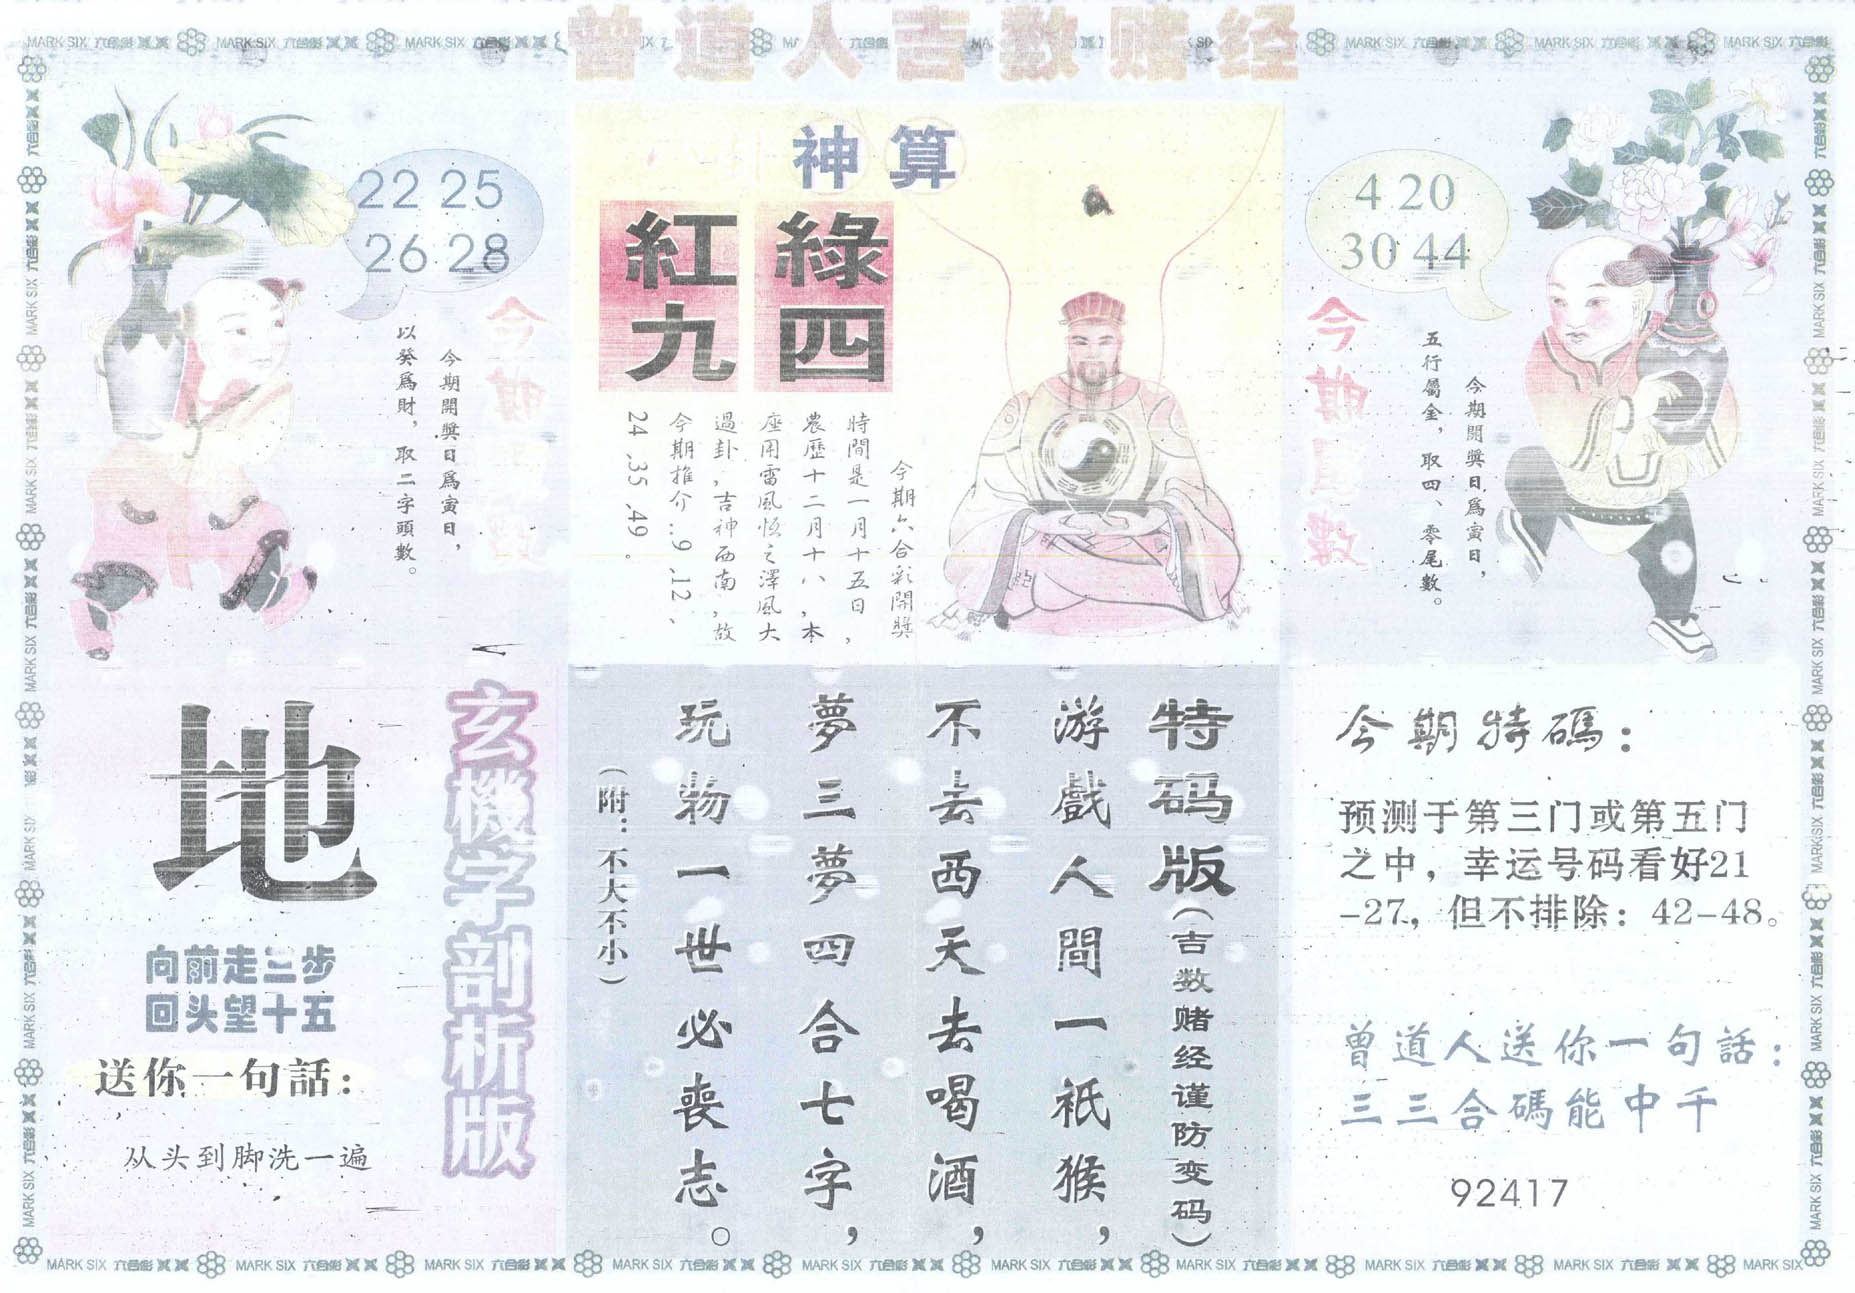 曾道人吉数赌经
MARK SIX 六合彩
22 25
26 28
今期
今期開獎日爲寅日，
以癸爲財，取二字頭數。
神算
綠四
紅九
今期六合彩開獎
時間是一月十五日，
農歷十二月十八，本
座用雷風恆之澤風大
過卦，吉神西南，故
今期推介：9、12、
24、35、49。
4 20
30 44
今期尾數
今期開獎日爲寅日，
五行屬金，取四、零尾數。
玄機字剖析版
地
向前走三步
回头望十五
送你一句話：
从头到脚洗一遍
特码版（吉数赌经谨防变码）
游戲人間一祇猴，
不去西天去喝酒，
夢三夢四合七字，
玩物一世必喪志。
（附：不大不小）
今期特碼：
预测于第三门或第五门
之中，幸运号码看好21
-27，但不排除：42-48。
曾道人送你一句話：
三三合碼能中千
92417